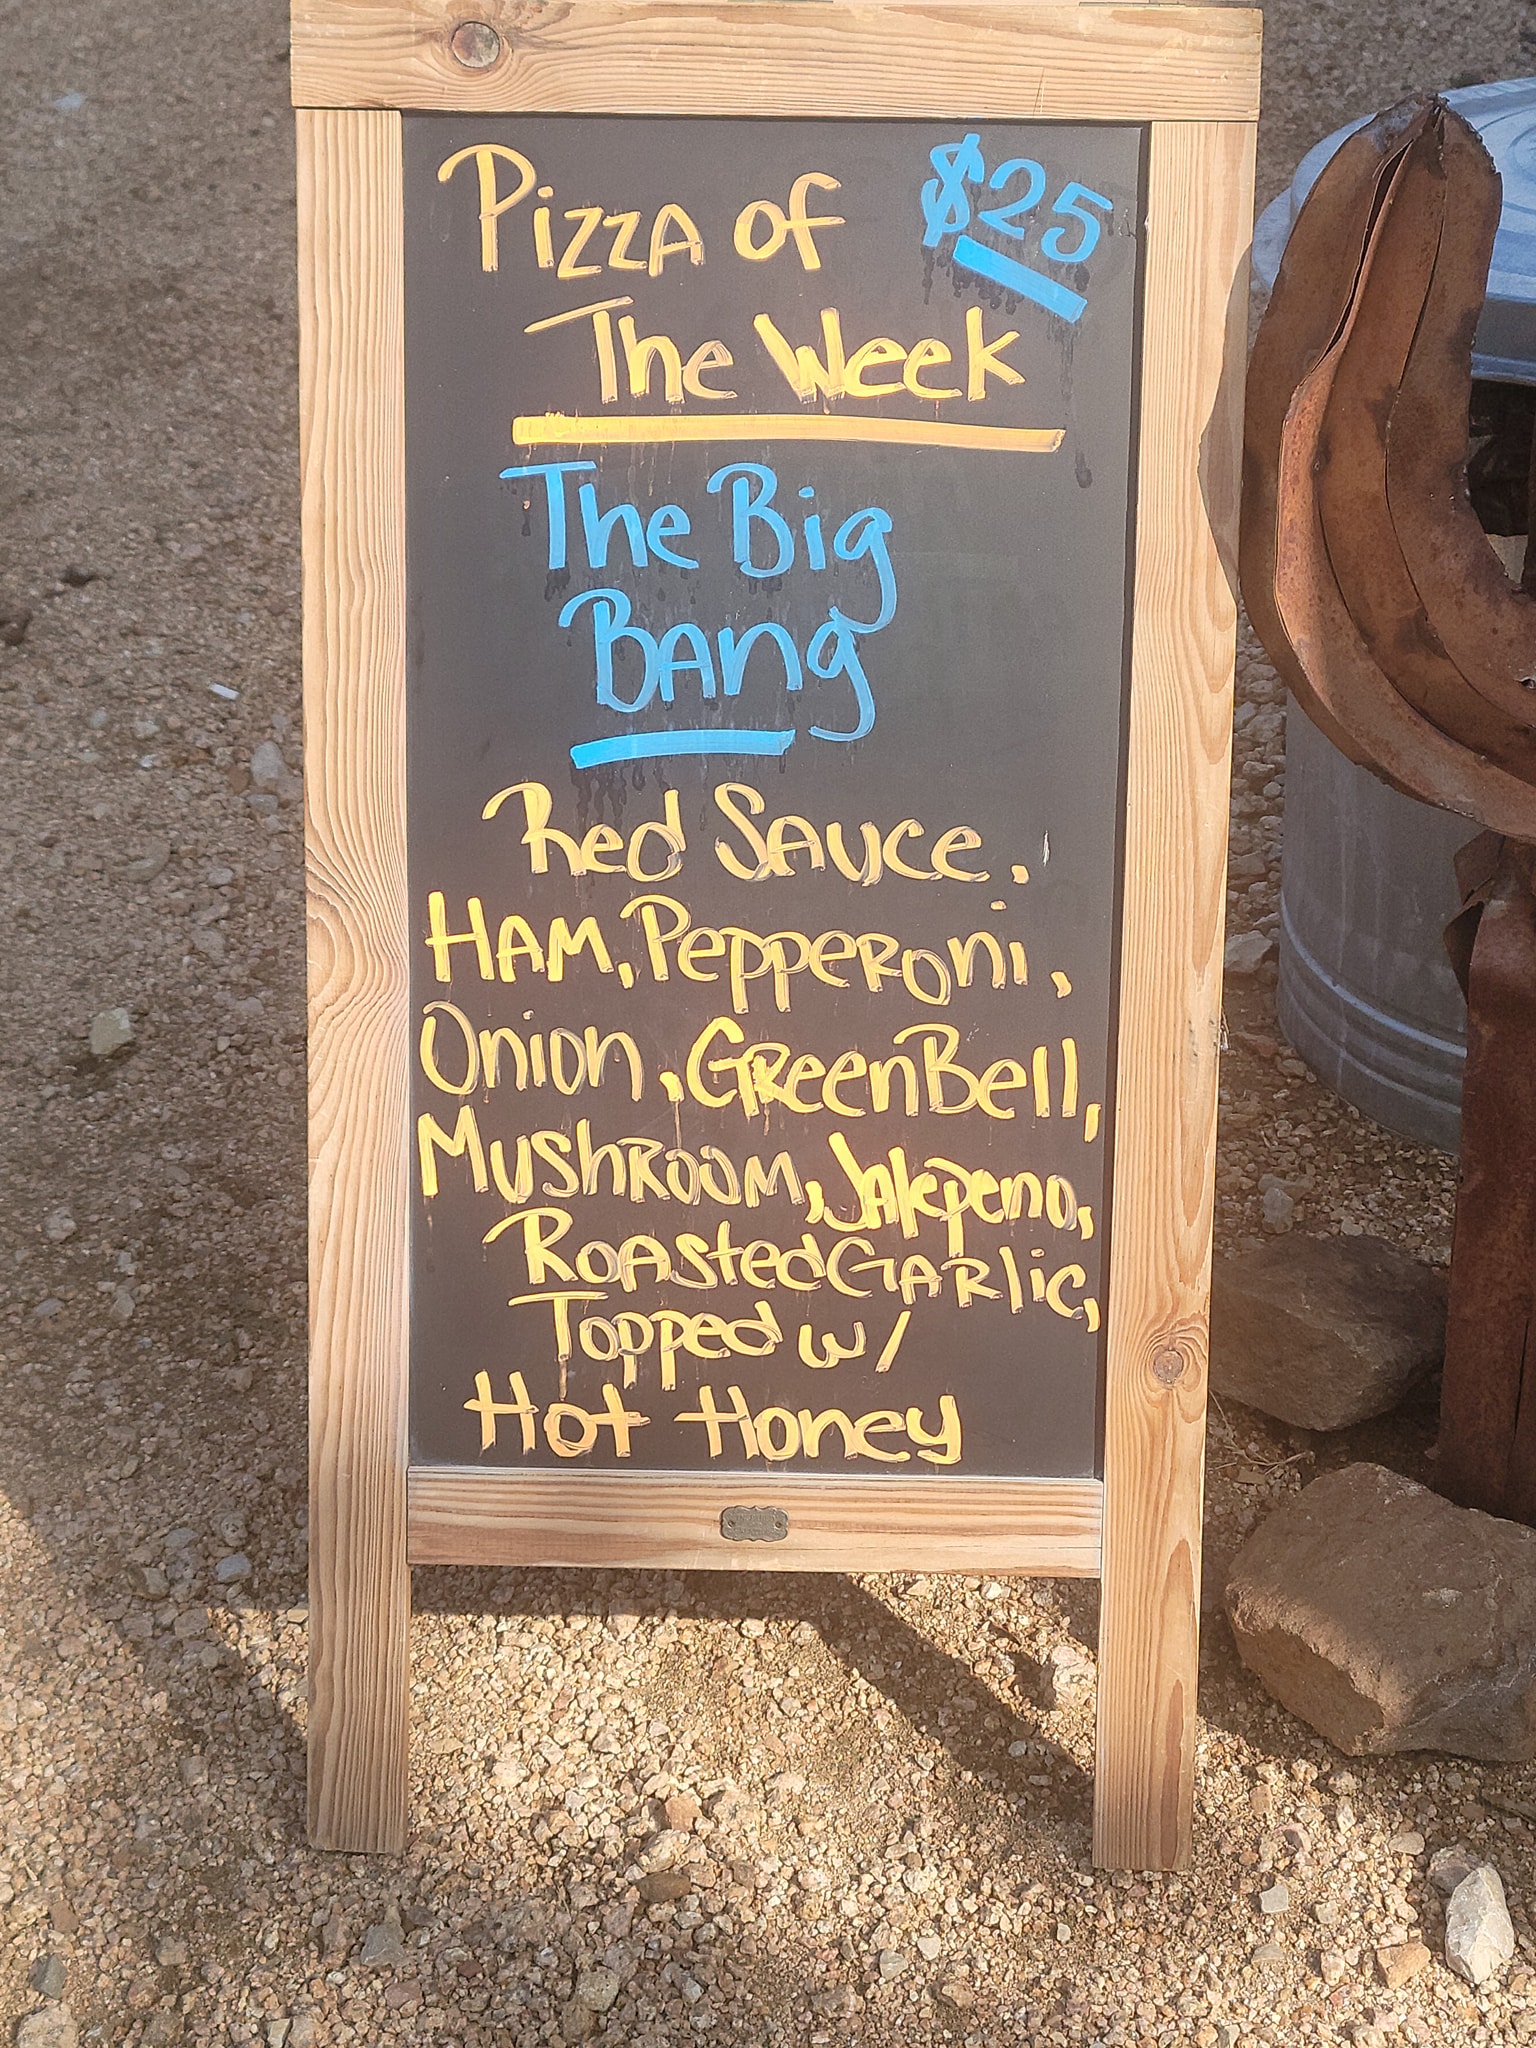 Pizza of $25
The Week
The Big
Bang
Red Sauce.
Ham, Pepperoni,
Onion, Green Bell,
Mushroom, Jalepeno,
Roasted Garlic,
Topped w/
Hot Honey